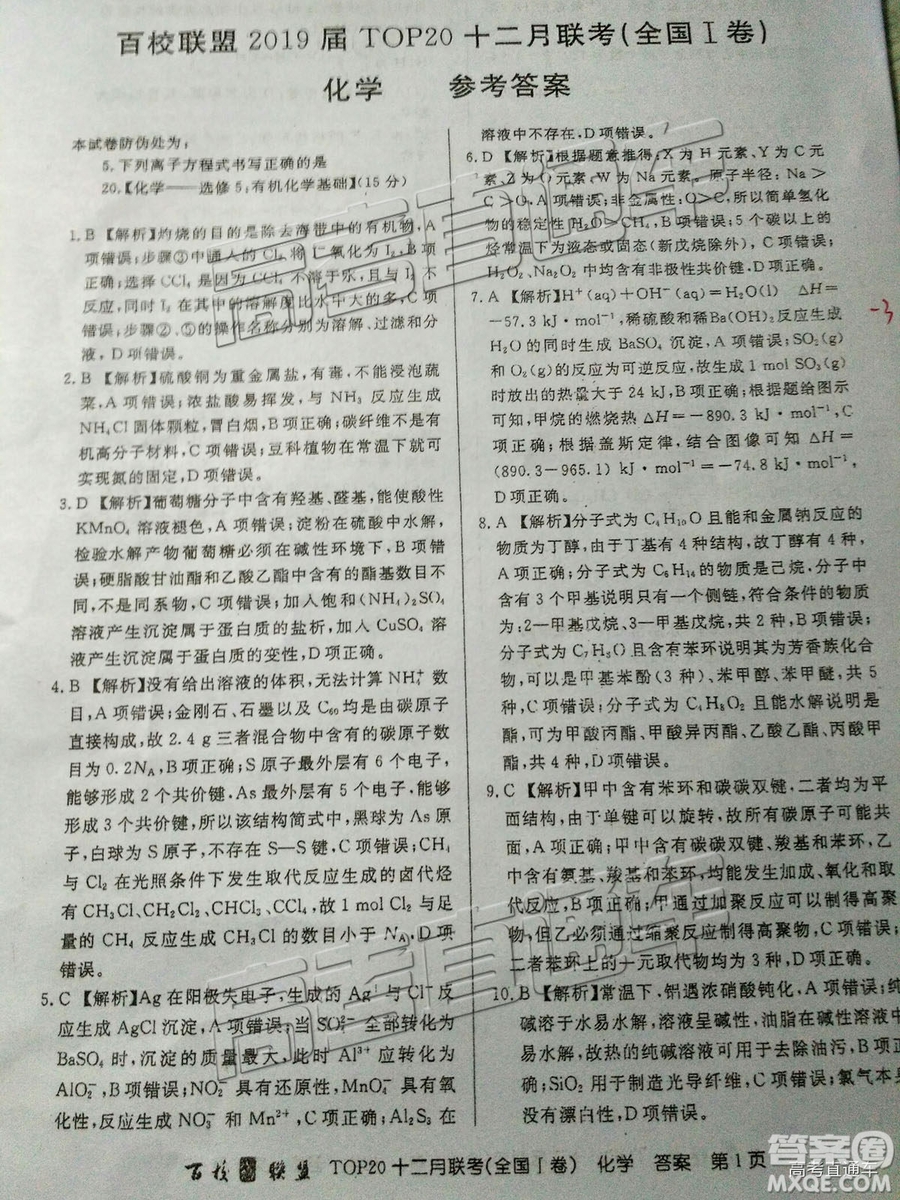 百校联盟 2019 届 TOP20 十二月联考(全国Ⅰ卷)
化学 参考答案
本试卷防伪处为:
5.下列离子方程式书写正确的是
20.【化学——选修5:有机化学基础】(15分)
1.B 【解析】灼烧的目的是除去海带中的有机物,A
项错误;步骤③中通入的 Cl₂ 将 I⁻ 氧化为 I₂,B 项
正确;选择 CCl₄ 是因为 CCl₄ 不溶于水,且与 I₂ 不
反应,同时 I₂ 在其中的溶解度比水中大的多,C 项
错误;步骤②、⑤的操作名称分别为溶解、过滤和分
液,D 项错误。
2.B 【解析】硫酸铜为重金属盐,有毒,不能浸泡蔬
菜,A 项错误;浓盐酸易挥发,与 NH₃ 反应生成
NH₄Cl 固体颗粒,冒白烟,B 项正确;碳纤维不是有
机高分子材料,C 项错误;豆科植物在常温下就可
实现氮的固定,D 项错误。
3.D 【解析】葡萄糖分子中含有羟基、醛基,能使酸性
KMnO₄ 溶液褪色,A 项错误;淀粉在硫酸中水解,
检验水解产物葡萄糖必须在碱性环境下,B 项错
误;硬脂酸甘油酯和乙酸乙酯中含有的酯基数目不
同,不是同系物,C 项错误;加入饱和(NH₄)₂SO₄
溶液产生沉淀属于蛋白质的盐析,加入 CuSO₄ 溶
液产生沉淀属于蛋白质的变性,D 项正确。
4.B 【解析】没有给出溶液的体积,无法计算 NH₄⁺ 数
目,A 项错误;金刚石、石墨以及 C₆₀ 均是由碳原子
直接构成,故 2.4 g 三者混合物中含有的碳原子数
目为 0.2Nₐ,B 项正确;S 原子最外层有 6 个电子,
能够形成 2 个共价键,As 最外层有 5 个电子,能够
形成 3 个共价键,所以该结构简式中,黑球为 As 原
子,白球为 S 原子,不存在 S—S 键,C 项错误;CH₄
与 Cl₂ 在光照条件下发生取代反应生成的卤代烃
有 CH₃Cl、CH₂Cl₂、CHCl₃、CCl₄,故 1 mol Cl₂ 与足
量的 CH₄ 反应生成 CH₃Cl 的数目小于 Nₐ,D 项
错误。
5.C 【解析】Ag 在阳极失电子,生成的 Ag⁺ 与 Cl⁻ 反
应生成 AgCl 沉淀,A 项错误;当 SO₄²⁻ 全部转化为
BaSO₄ 时,沉淀的质量最大,此时 Al³⁺ 应转化为
AlO₂⁻,B 项错误;NO₂⁻ 具有还原性,MnO₄⁻ 具有氧
化性,反应生成 NO₃⁻ 和 Mn²⁺,C 项正确;Al₂S₃ 在
溶液中不存在,D 项错误。
6.D 【解析】根据题意推得:X 为 H 元素、Y 为 C 元
素、Z 为 O 元素、W 为 Na 元素。原子半径:Na>
C>O,A 项错误;非金属性:O>C,所以简单氢化
物的稳定性 H₂O>CH₄,B 项错误;5 个碳以上的
烃常温下为液态或固态(新戊烷除外),C 项错误;
H₂O₂、Na₂O₂ 中均含有非极性共价键,D 项正确。
7.A 【解析】H⁺(aq)+OH⁻(aq)=H₂O(l) ΔH=
−57.3 kJ·mol⁻¹,稀硫酸和稀Ba(OH)₂反应生成
H₂O 的同时生成 BaSO₄ 沉淀,A 项错误;SO₂(g)
和 O₂(g)的反应为可逆反应,故生成 1 mol SO₃(g)
时放出的热量大于 24 kJ,B 项正确;根据题给图示
可知,甲烷的燃烧热 ΔH=−890.3 kJ·mol⁻¹,C
项正确;根据盖斯定律,结合图像可知 ΔH=
(890.3−965.1) kJ·mol⁻¹=−74.8 kJ·mol⁻¹,
D 项正确。
-3
8.A 【解析】分子式为 C₄H₁₀O 且能和金属钠反应的
物质为丁醇,由于丁基有 4 种结构,故丁醇有 4 种,
A 项正确;分子式为 C₆H₁₄ 的物质是己烷,分子中
含有 3 个甲基说明只有一个侧链,符合条件的物质
为:2—甲基戊烷、3—甲基戊烷,共 2 种,B 项错误;
分子式为 C₇H₈O 且含有苯环说明其为芳香族化合
物,可以是甲基苯酚(3 种)、苯甲醇、苯甲醚,共 5
种,C 项错误;分子式为 C₄H₈O₂ 且能水解说明是
酯,可为甲酸丙酯、甲酸异丙酯、乙酸乙酯、丙酸甲
酯,共 4 种,D 项错误。
9.C 【解析】甲中含有苯环和碳碳双键,二者均为平
面结构,由于单键可以旋转,故所有碳原子可能共
面,A 项正确;甲中含有碳碳双键、羧基和苯环,乙
中含有氨基、羧基和苯环,均能发生加成、氧化和取
代反应,B 项正确;甲通过加聚反应可制得高聚
物,但乙必须通过缩聚反应制得高聚物,C 项错误;
二者苯环上的一元取代物均为 3 种,D 项正确。
10.B 【解析】常温下,铝遇浓硝酸钝化,A 项错误;纯
碱溶于水易水解,溶液呈碱性,油脂在碱性溶液中
易水解,故热的纯碱溶液可用于去除油污,B 项正
确;SiO₂ 用于制造光导纤维,C 项错误;氯气本身
没有漂白性,D 项错误。
百校联盟 TOP20 十二月联考(全国Ⅰ卷) 化学 答案 第1页
高考直通车
高考直通车
答案圈
高考直通车
MXQE.COM